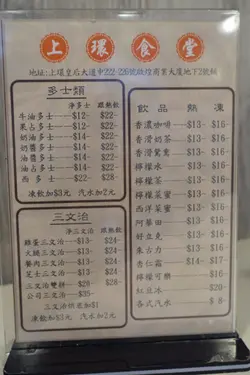 上環食堂
地址:上環皇后大道中222-228號啟煌商業大廈地下2號舖
多士類
淨多士 跟熱飲
牛油多士 $12- $22-
果占多士 $12- $22-
奶油多士 $12- $22-
奶醬多士 $14- $24-
油醬多士 $14- $24-
油占多士 $14- $24-
西多士 $28-
凍飲加$3元 汽水加2元
三文治
淨三文治 跟熱飲
雞蛋三文治 $13- $24
火腿三文治 $13- $24
餐肉三文治 $13- $24
芝士三文治 $13- $24
三文治雙拼 $20-
公司三文治 $35-
三文治烘底加$1
凍飲加$3元 汽水加2元
飲品 熱 凍
香濃咖啡 $13- $16-
香滑奶茶 $13- $16-
香滑鴛鴦 $13- $16-
檸檬水 $13- $16-
檸檬茶 $13- $16-
檸檬菜蜜 $13- $16-
西洋菜蜜 $13- $16-
阿華田 $13- $16-
好立克 $13- $16-
朱古力 $13- $16-
杏仁霜 $14- $17-
檸檬可樂 $16-
紅豆冰 $20-
各式汽水 $8-